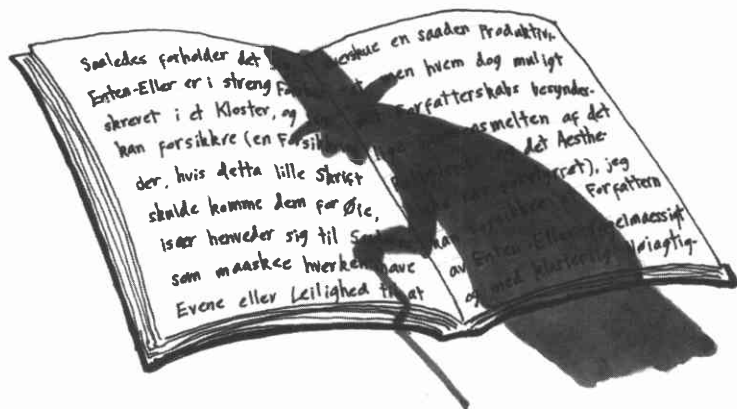 Saaledes forholder det
Enten-Eller er i streng
skrevet i et Kloster, og
kan forsikkre (en
der, hvis detta lille Skrift
skulde komme dem for Øie,
især henveder sig til
som maaskee hverken have
Evene eller Leilighed til at
en saaden Produktivi-
men hvem dog muligt
Forfatterskabs besynder-
lige af det
og det Aesthe-
jeg
kan forsikkre at Forfattern
av Enten-Eller regelmaessigt
og med klosterlig Nøiagtig-